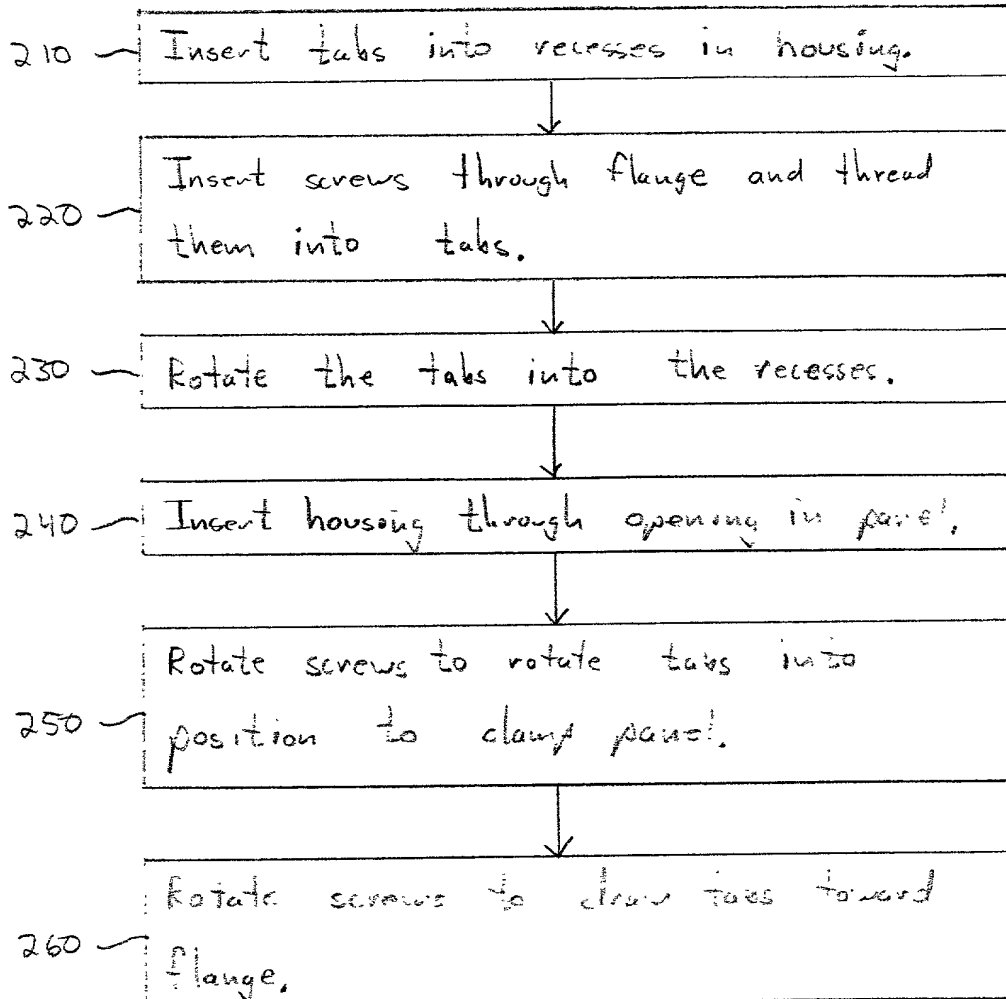 210 Insert tabs into recesses in housing.
Insert screws through flange and thread
220 them into tabs.
230 Rotate the tabs into the recesses.
240 Insert housing through opening in panel.
Rotate screws to rotate tabs into
250 position to clamp panel.
Rotate screws to draw tabs toward
260 flange.